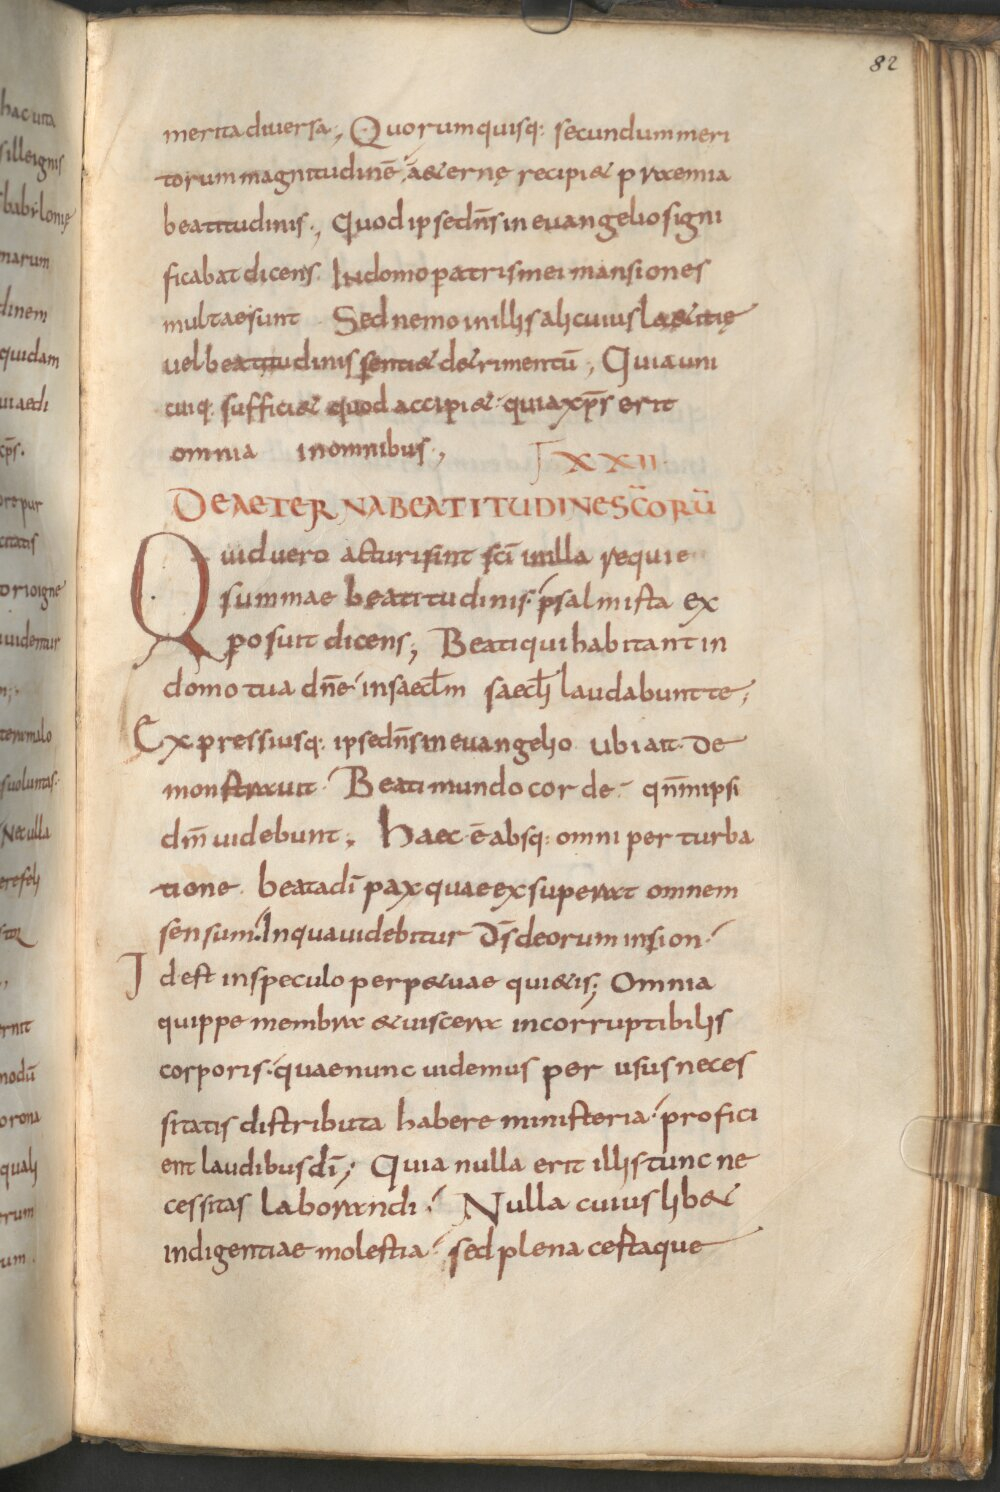 82
merita diuersa; Quorum quisq: secundum meri
torum magnitudinē, a&ernę recipi& praemia
beatitudinis; Quod ipse dn̄s in euangelio signi
ficabat dicens. In domo patris mei mansiones
multae sunt Sed nemo in illis alicuius la&itię
uel beatitudinis senti& d&rimentū; Quia uni
cuiq. suffici& quod accipi&. quia xp̄s erit
omnia in omnibus;
XXII.
DE AETERNA BEATITUDINE SC̄ORŪ
Quid uero acturi sint sc̄i in illa requie
summae beatitudinis. psalmista ex
posuit dicens; Beati qui habitant in
domo tua dn̄e in saecl̄m saecl̄i laudabunt te;
Expressiusq: ipse dn̄s in euangelio ubi ait. de
monstrauit. Beati mundo corde. qn̄m ipsi
dm̄ uidebunt; Haec ē absq: omni perturba
tione beata dī pax quae exsuperat omnem
sensum. In qua uidebitur d̄s deorum in sion.
Id est in speculo perp&uae qui&is; Omnia
quippe membra & uiscera incorruptibilis
corporis. quae nunc uidemus per usus neces
sitatis distributa habere ministeria. profici
ent laudibus dī; Quia nulla erit illis tunc ne
cessitas laborandi. Nulla cuiuslib&
indigentiae molestia. sed plena certaque